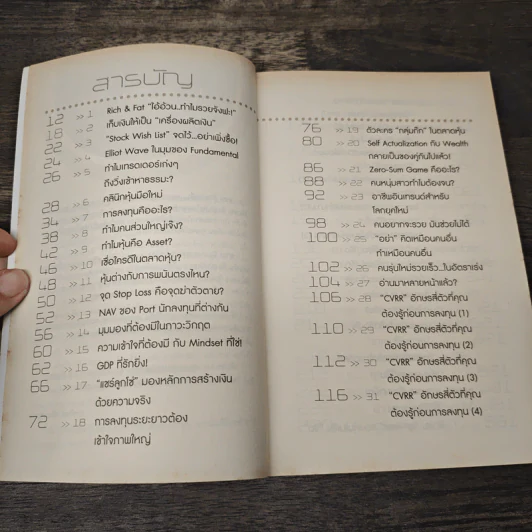 สารบัญ
12 >> 1 Rich & Fat "ไอ้อ้วน...ทำไมรวยจังฟะ!"
18 >> 2 เก็บเงินให้เป็น "เครื่องผลิตเงิน"
22 >> 3 "Stock Wish List" จดไว้...อย่าเพิ่งซื้อ!
24 >> 4 Elliot Wave ในมุมของ Fundamental
26 >> 5 ทำไมเทรดเดอร์เก่งๆ
ถึงวิ่งเข้าหาธรรมะ?
28 >> 6 คลินิกหุ้นมือใหม่
34 >> 7 การลงทุนคืออะไร?
38 >> 8 ทำไมคนส่วนใหญ่เจ๊ง?
42 >> 9 ทำไมหุ้นคือ Asset?
46 >> 10 เชื่อใครดีในตลาดหุ้น?
48 >> 11 หุ้นต่างกับการพนันตรงไหน?
50 >> 12 จุด Stop Loss คือจุดฆ่าตัวตาย?
52 >> 13 NAV ของ Port นักลงทุนที่ต่างกัน
56 >> 14 มุมมองที่ต้องมีในภาวะวิกฤต
60 >> 15 ความเข้าใจที่ต้องมี กับ Mindset ที่ใช่!
62 >> 16 GDP ที่รักยิ่ง!
66 >> 17 "แชร์ลูกโซ่" มองหลักการสร้างเงิน
ด้วยความจริง
72 >> 18 การลงทุนระยะยาวต้อง
เข้าใจภาพใหญ่
76 >> 19 ตัวละคร "กลุ่มกึ๊ก" ในตลาดหุ้น
80 >> 20 Self Actualization กับ Wealth
กลายเป็นของคู่กันไปแล้ว!
86 >> 21 Zero-Sum Game คืออะไร?
88 >> 22 คนหนุ่มสาวทำไมต้องจน?
92 >> 23 อาชีพอินเทรนด์สำหรับ
โลกยุคใหม่
98 >> 24 คนอยากจะรวย มันช่วยไม่ได้
100 >> 25 "อย่า" คิดเหมือนคนอื่น
ทำเหมือนคนอื่น
102 >> 26 คนรุ่นใหม่รวยเร็ว...ในอัตราเร่ง
104 >> 27 อ่านมาหลายหน้าแล้ว?
106 >> 28 "CVRR" อักษรสี่ตัวที่คุณ
ต้องรู้ก่อนการลงทุน (1)
110 >> 29 "CVRR" อักษรสี่ตัวที่คุณ
ต้องรู้ก่อนการลงทุน (2)
112 >> 30 "CVRR" อักษรสี่ตัวที่คุณ
ต้องรู้ก่อนการลงทุน (3)
116 >> 31 "CVRR" อักษรสี่ตัวที่คุณ
ต้องรู้ก่อนการลงทุน (4)